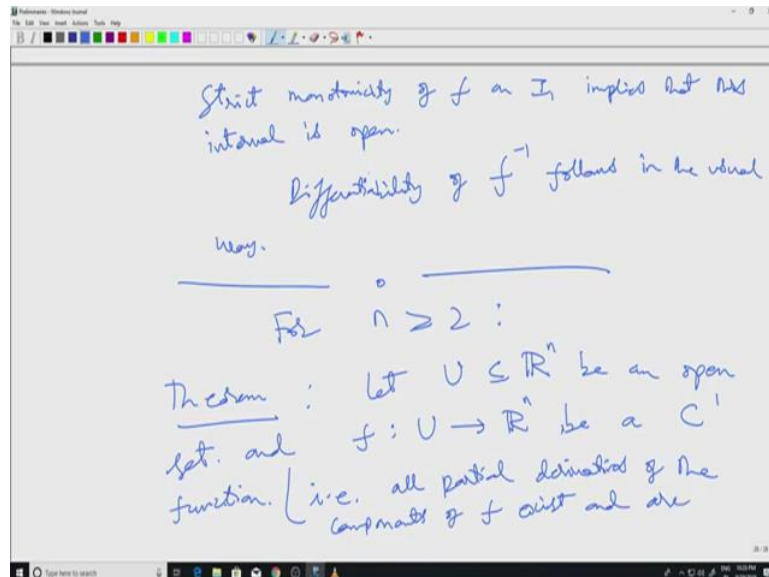 Preliminaries - Windows Journal
File Edit View Insert Actions Tools Help
Strict monotonicity of f on I, implies that this
interval is open.
Differentiability of f⁻¹ follows in the usual
way.
For n ≥ 2 :
Theorem : Let U ⊆ ℝⁿ be an open
set. and f : U → ℝⁿ be a C¹
function. (i.e. all partial derivatives of the
components of f exist and are
Type here to search